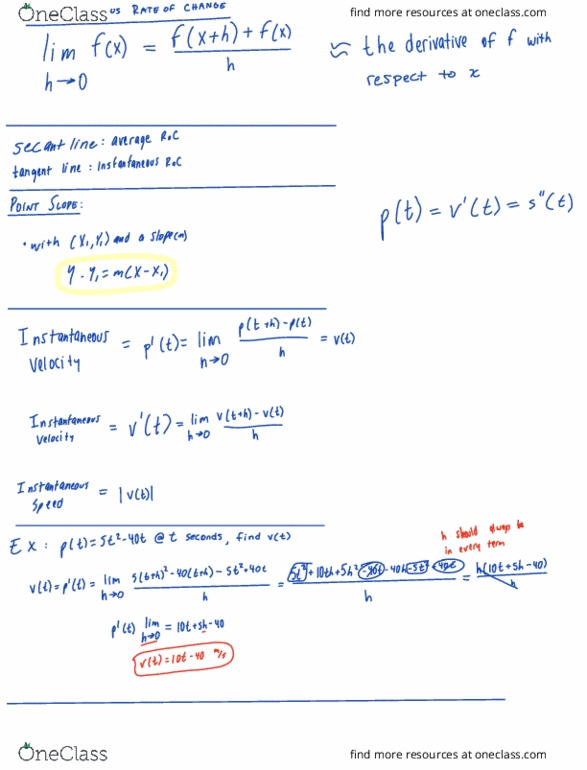 OneClass
find more resources at oneclass.com
US RATE OF CHANGE
lim f(x) = f(x+h) + f(x)
h→0 h
≈ the derivative of f with
respect to x
secant line: average RoC
tangent line: Instantaneous RoC
POINT SLOPE:
• with (X₁,Y₁) and a slope(m)
y - y₁ = m(x - x₁)
p(t) = v'(t) = s''(t)
Instantaneous Velocity = p'(t) = lim h→0 p(t+h) - p(t) / h = v(t)
Instantaneous Velocity = v'(t) = lim h→0 v(t+h) - v(t) / h
Instantaneous Speed = |v(t)|
EX: p(t) = 5t² - 40t @ t seconds, find v(t)
h should
in every term
v(t) = p'(t) = lim h→0 5(t+h)² - 40(t+h) - 5t² + 40t / h = 5t² + 10th + 5h² - 40t - 40h - 5t² + 40t / h = h(10t + 5h - 40) / h
p'(t) lim h→0 = 10t + 5h - 40
v(t) = 10t - 40 m/s
OneClass
find more resources at oneclass.com